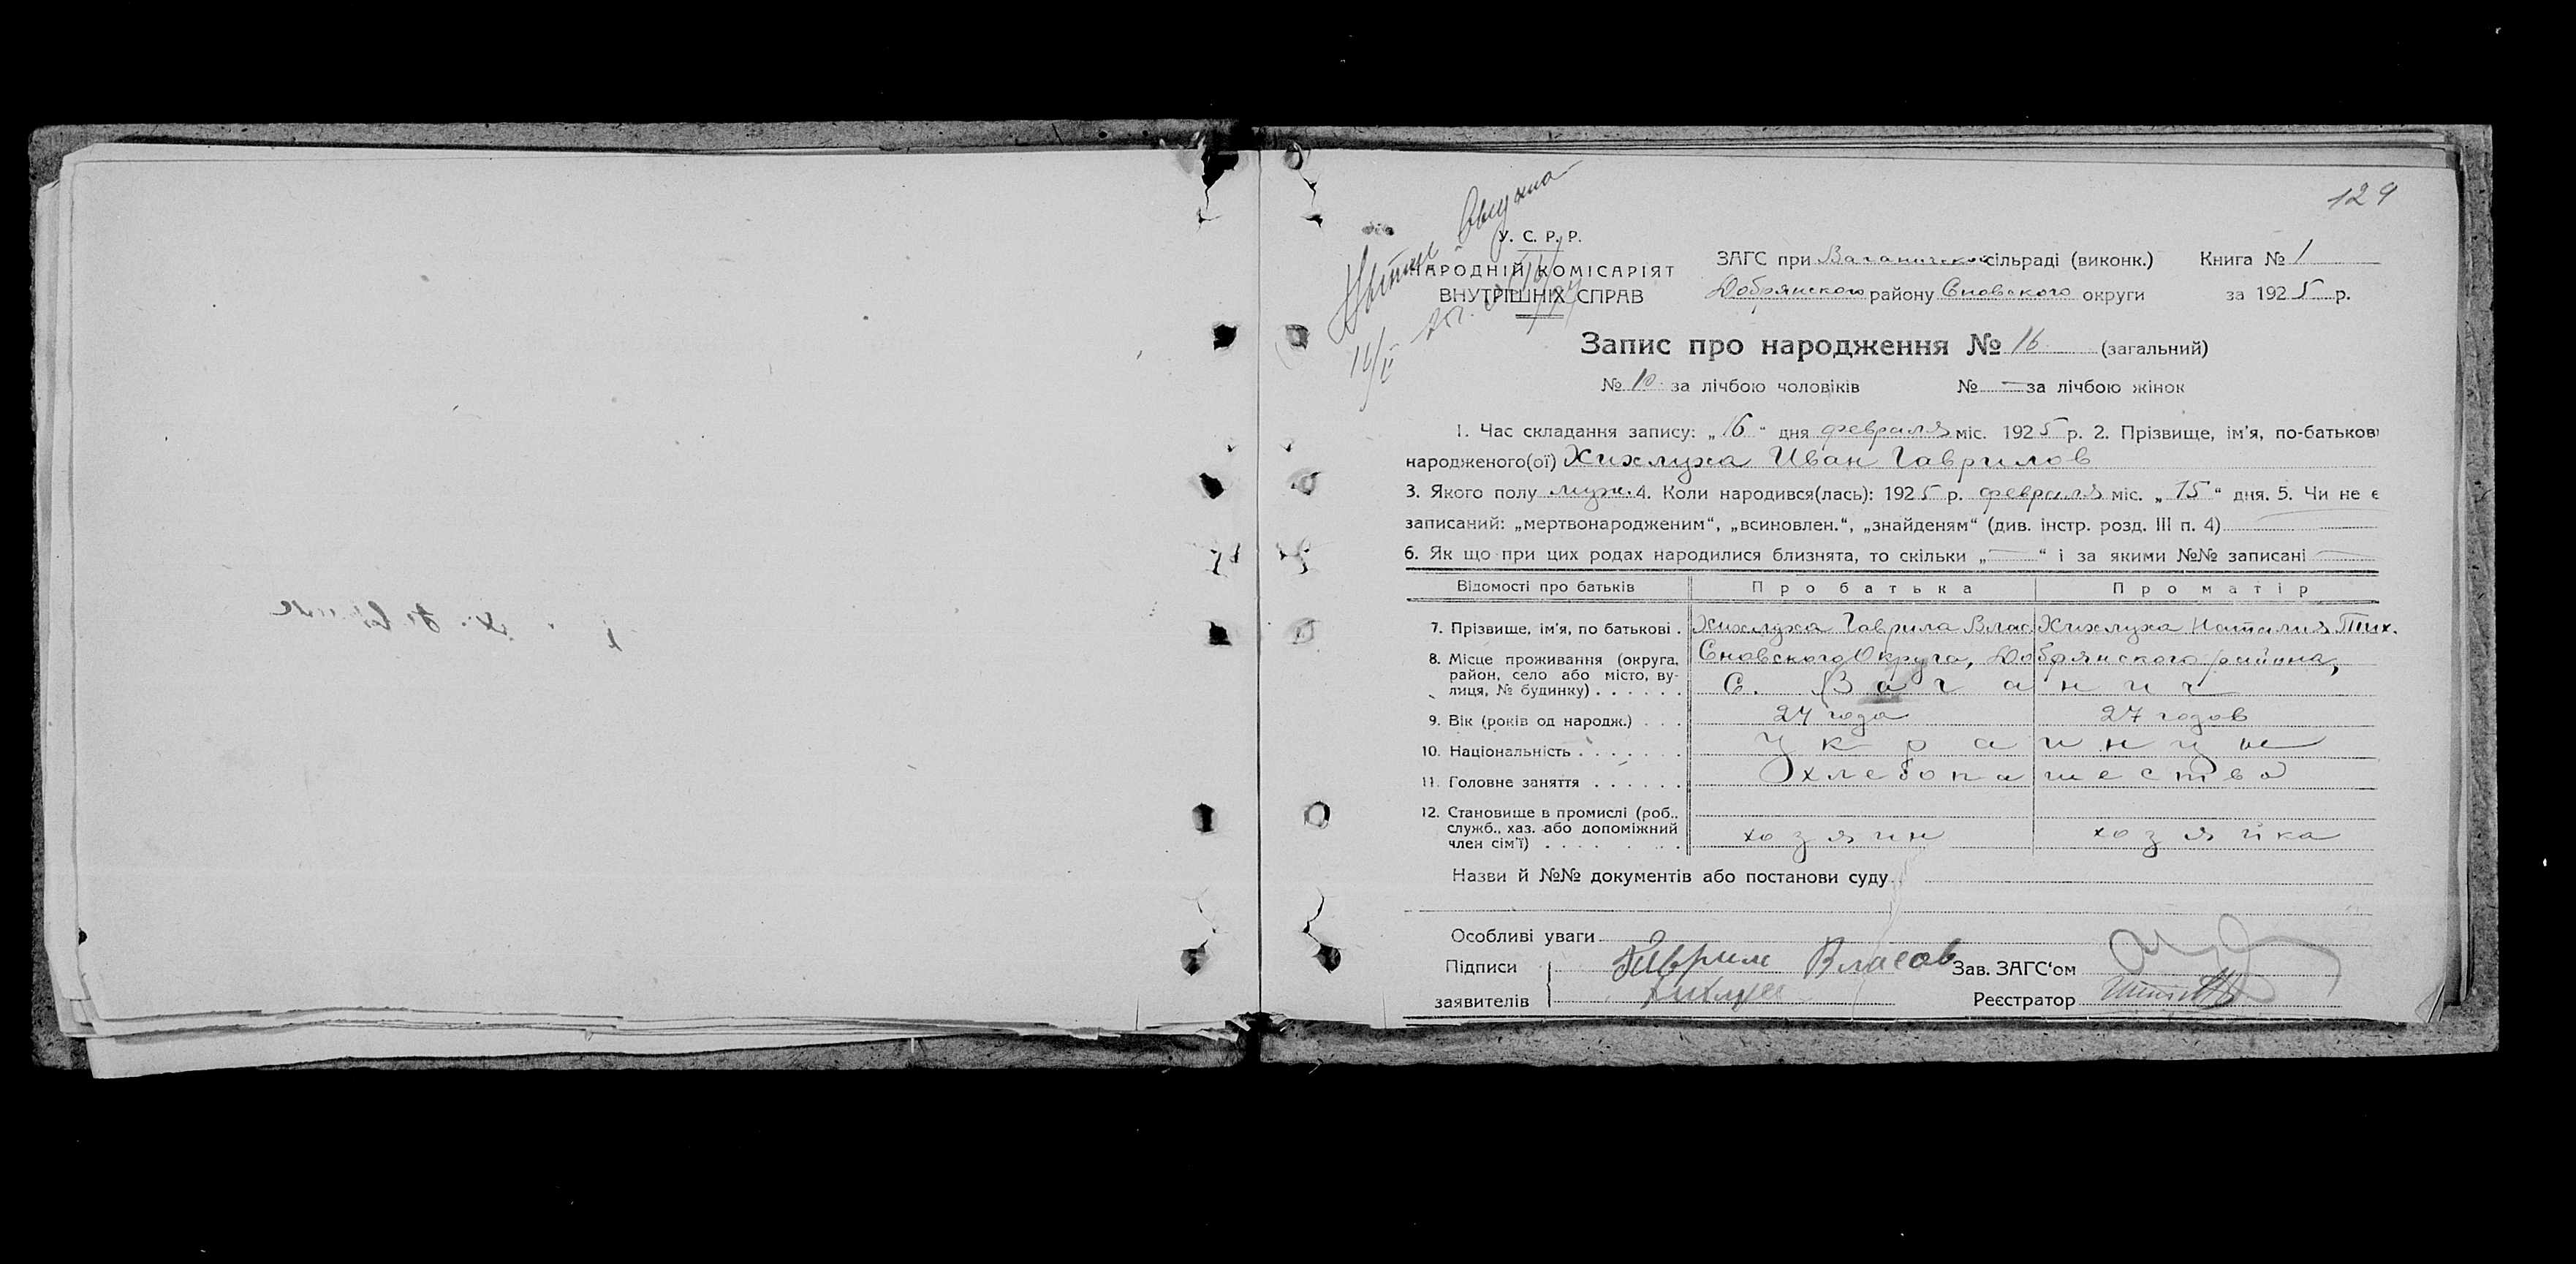 129
У. С. Р. Р.
НАРОДНІЙ КОМІСАРІЯТ
ВНУТРІШНІХ СПРАВ
ЗАГС при Ваганичской сільраді (виконк.) Книга № 1
Добрянского району Сновского округи за 1925 р.
Запис про народження № 16 (загальний)
№ 10 за лічбою чоловіків № — за лічбою жінок
1. Час складання запису: „16“ дня февраля міс. 1925 р. 2. Прізвище, ім'я, по-батькові
народженого(ої) Хихлуха Иван Гаврилов
3. Якого полу муж. 4. Коли народився(лась): 1925 р. февраля міс. „15“ дня. 5. Чи не є
записаний: „мертвонародженим“, „всиновлен.“, „знайденям“ (див. інстр. розд. III п. 4) —
6. Як що при цих родах народилися близнята, то скільки „—“ і за якими №№ записані —
Відомості про батьків Про батька Про матір
7. Прізвище, ім'я, по батькові . Хихлуха Гаврила Влас Хихлуха Наталия Тих.
8. Місце проживання (округа, Сновского Округа, Добрянского района,
район, село або місто, ву-
лиця, № будинку) . . . . . . С. Ваганич
9. Вік (років од народж.) . . . 24 года 27 годов
10. Національність . . . . . . . Украинцы
11. Головне заняття . . . . . . хлебопашество
12. Становище в промислі (роб.,
служб., хаз. або допоміжний
член сім'ї) . . . . . . . хозяин хозяйка
Назви й №№ документів або постанови суду
Особливі уваги
Підписи Гаврил Власов Зав. ЗАГС'ом
заявителів Хихлуха Реєстратор